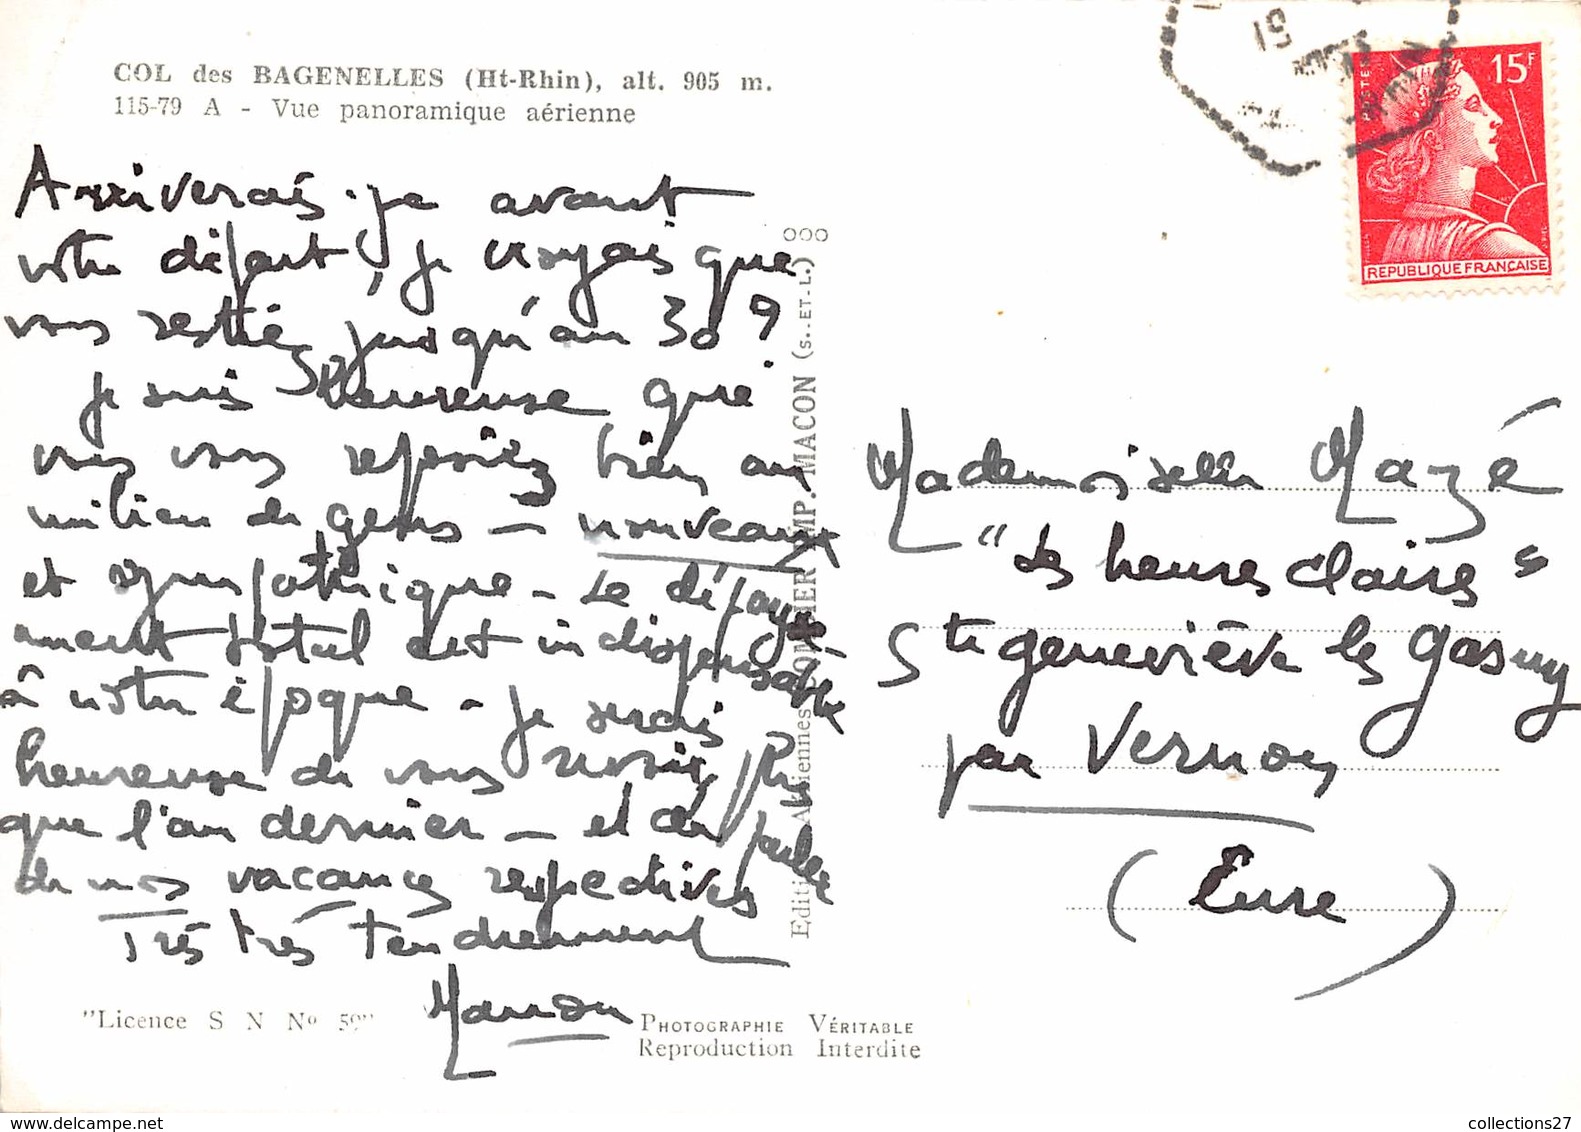 COL des BAGENELLES (Ht-Rhin), alt. 905 m.
115-79 A - Vue panoramique aérienne
Arriverais-je avant
votre départ, je croyais que
vous restiez jusqu'au 30 ?
je suis heureuse que
vous vous reposiez bien au
milieu de gens - nouveaux
et sympathique - Le dépays
ement total est indispensable
à notre époque - je serais
heureuse de vous revoir plus
que l'an dernier - et de parler
de nos vacances respectives
Très très tendrement
Manon
"Licence S N No 59"
PHOTOGRAPHIE VÉRITABLE
Reproduction Interdite
Editions Alsiennes COMBIER IMP. MACON (S.-ET-L.)
15F
POSTES
REPUBLIQUE FRANÇAISE
51
Mademoiselle Mazé
"Les heures claires"
Ste geneviève les gasny
par Vernon
(Eure)
collections27